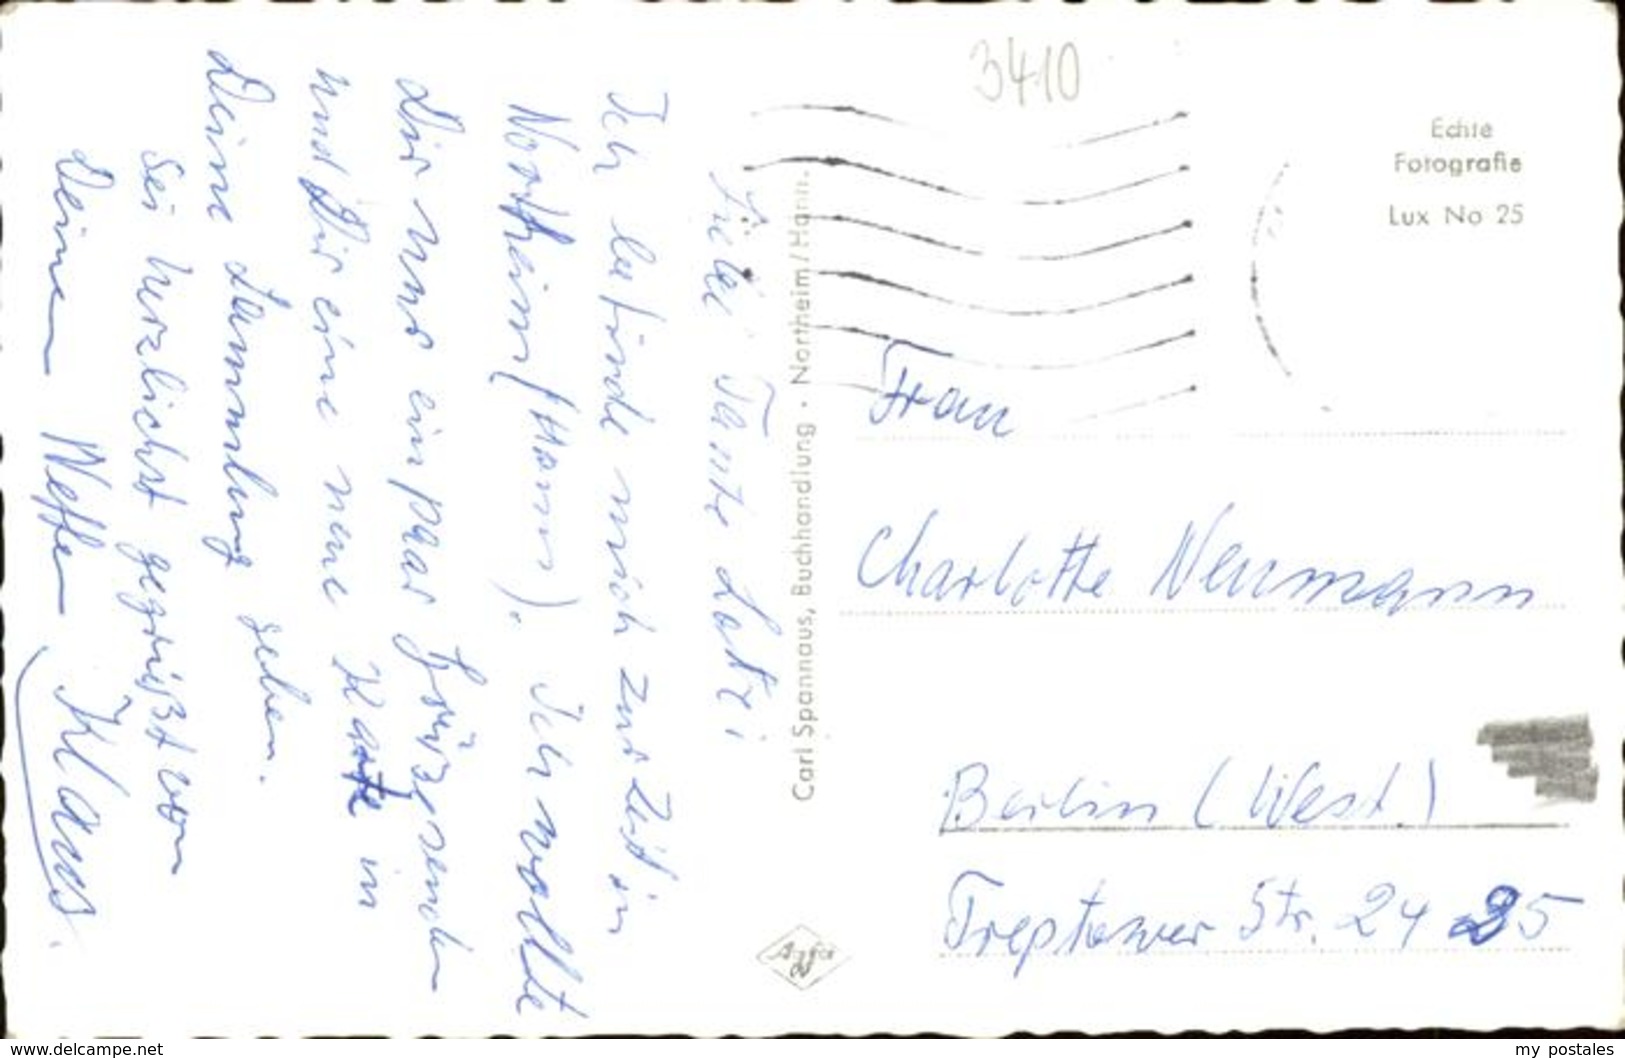 Liebe Tante Lotti
Ich befinde mich zur Zeit in
Northeim (Hann). Ich wollte
dir nur ein paar Grüße senden
und Dir eine neue Karte in
Deine Sammlung geben.
Sei herzlichst gegrüßt von
Deinem Neffen Klaus.
Carl Spannaus, Buchhandlung · Northeim/Hann.
3410
Echte
Fotografie
Lux No 25
Frau
Charlotte Neumann
Berlin (West)
Treptower Str. 24 25
Agfa
www.delcampe.net
my postales